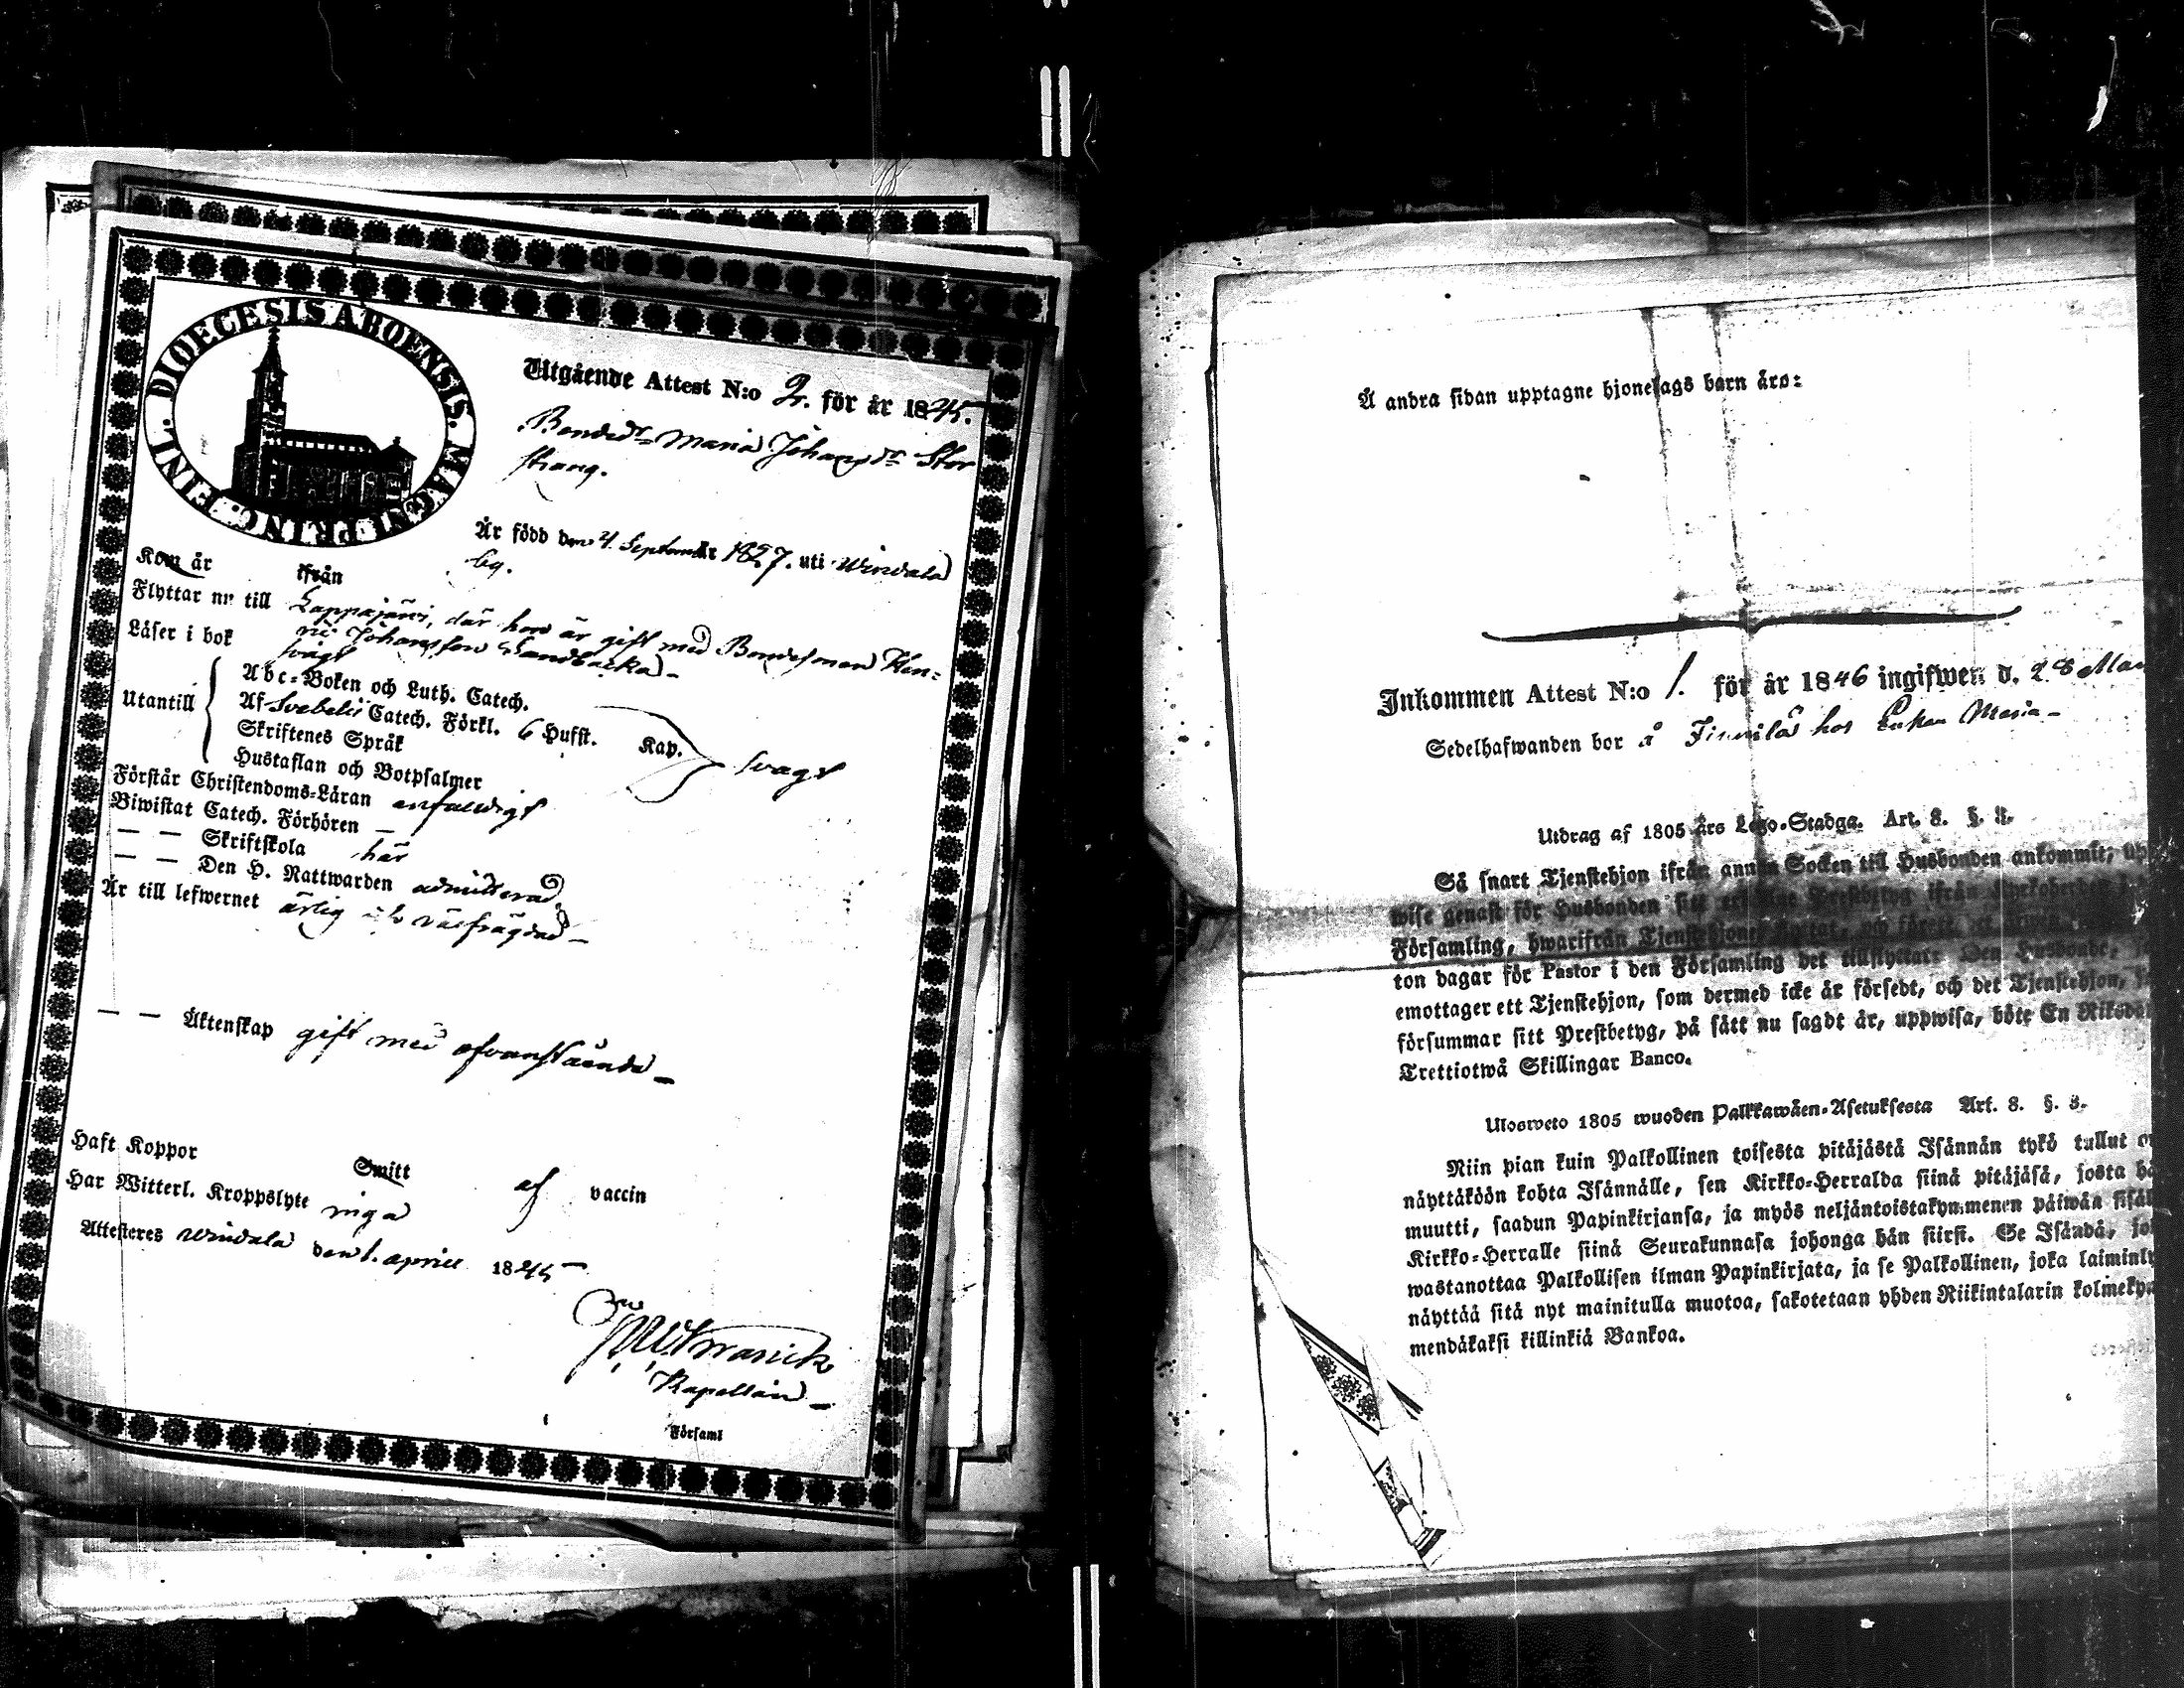 DIOECESIS ABOENSIS. MAGNI PRINC. FINL.
Utgående Attest N:o 2. för år 1845.
Bonded:r Maria Johansd:r Stor
strang.
Är född den 4 September 1827. uti Windala
by.
Kom år ifrån
Flyttar nu till Lappajärvi, där hon är gift med Bondesonen Hen-
ric Johansson Sandbacka-
Läser i bok svagt
Utantill
Abc-Boken och Luth. Catech.
Af Svebelii Catech. Förkl. 6 Hufst. Kap. svagt
Skriftenes Språk
Hustaflan och Botpsalmer
Förstår Christendoms-Läran enfaldigt
Biwistat Catech. Förhören —
— — Skriftskola här
— — Den H. Nattwarden admitterad,
Är till lefwernet ärlig och välfrägdad-
— — Äktenskap gift med ofvanstående-
Haft Koppor Smitt af vaccin
Har Witterl. Kroppslyte inga
Attesteres Windala den 1. april 1845
Kapellan-
Församl
Å andra sidan upptagne hjonelags barn äro:
Inkommen Attest N:o 1. för år 1846 ingifwen d. 28 Mar
Sedelhafwanden bor å hos Enkan Maria-
Utdrag af 1805 års Lego-Stadga. Art. 8. §. 3.
Så snart Tjenstehjon ifrån annan Socken till Husbonden ankommit, upp
wise genast för Husbonden sitt Prestbetyg ifrån Kyrkoherden i
Församling, hwarifrån Tjenstehjonet flyttat, och
ton dagar för Pastor i den Församling det tillflyttat. Den Husbonde,
emottager ett Tjenstehjon, som dermed icke är försedt, och det Tjenstehjon,
försummar sitt Prestbetyg, på sätt nu sagdt är, uppwisa, böte En Riksdal
Trettiotwå Skillingar Banco.
Ulosweto 1805 wuoden Palkkawäen-Asetuksesta Art. 8. §. 3.
Niin pian kuin Palkollinen toisesta pitäjästä Isännän tykö tullut on
näyttäköön kohta Isännälle, sen Kirkko-Herralda siinä pitäjäsä, josta hä
muutti, saadun Papinkirjansa, ja myös neljäntoistakymmenen päiwän sisäll
Kirkko-Herralle siinä Seurakunnasa johonga hän siirsi. Se Isändä, jo
wastanottaa Palkollisen ilman Papinkirjata, ja se Palkollinen, joka laiminly
näyttää sitä nyt mainitulla muotoa, sakotetaan yhden Riikintalarin kolmekym
mendäkaksi killinkiä Bankoa.